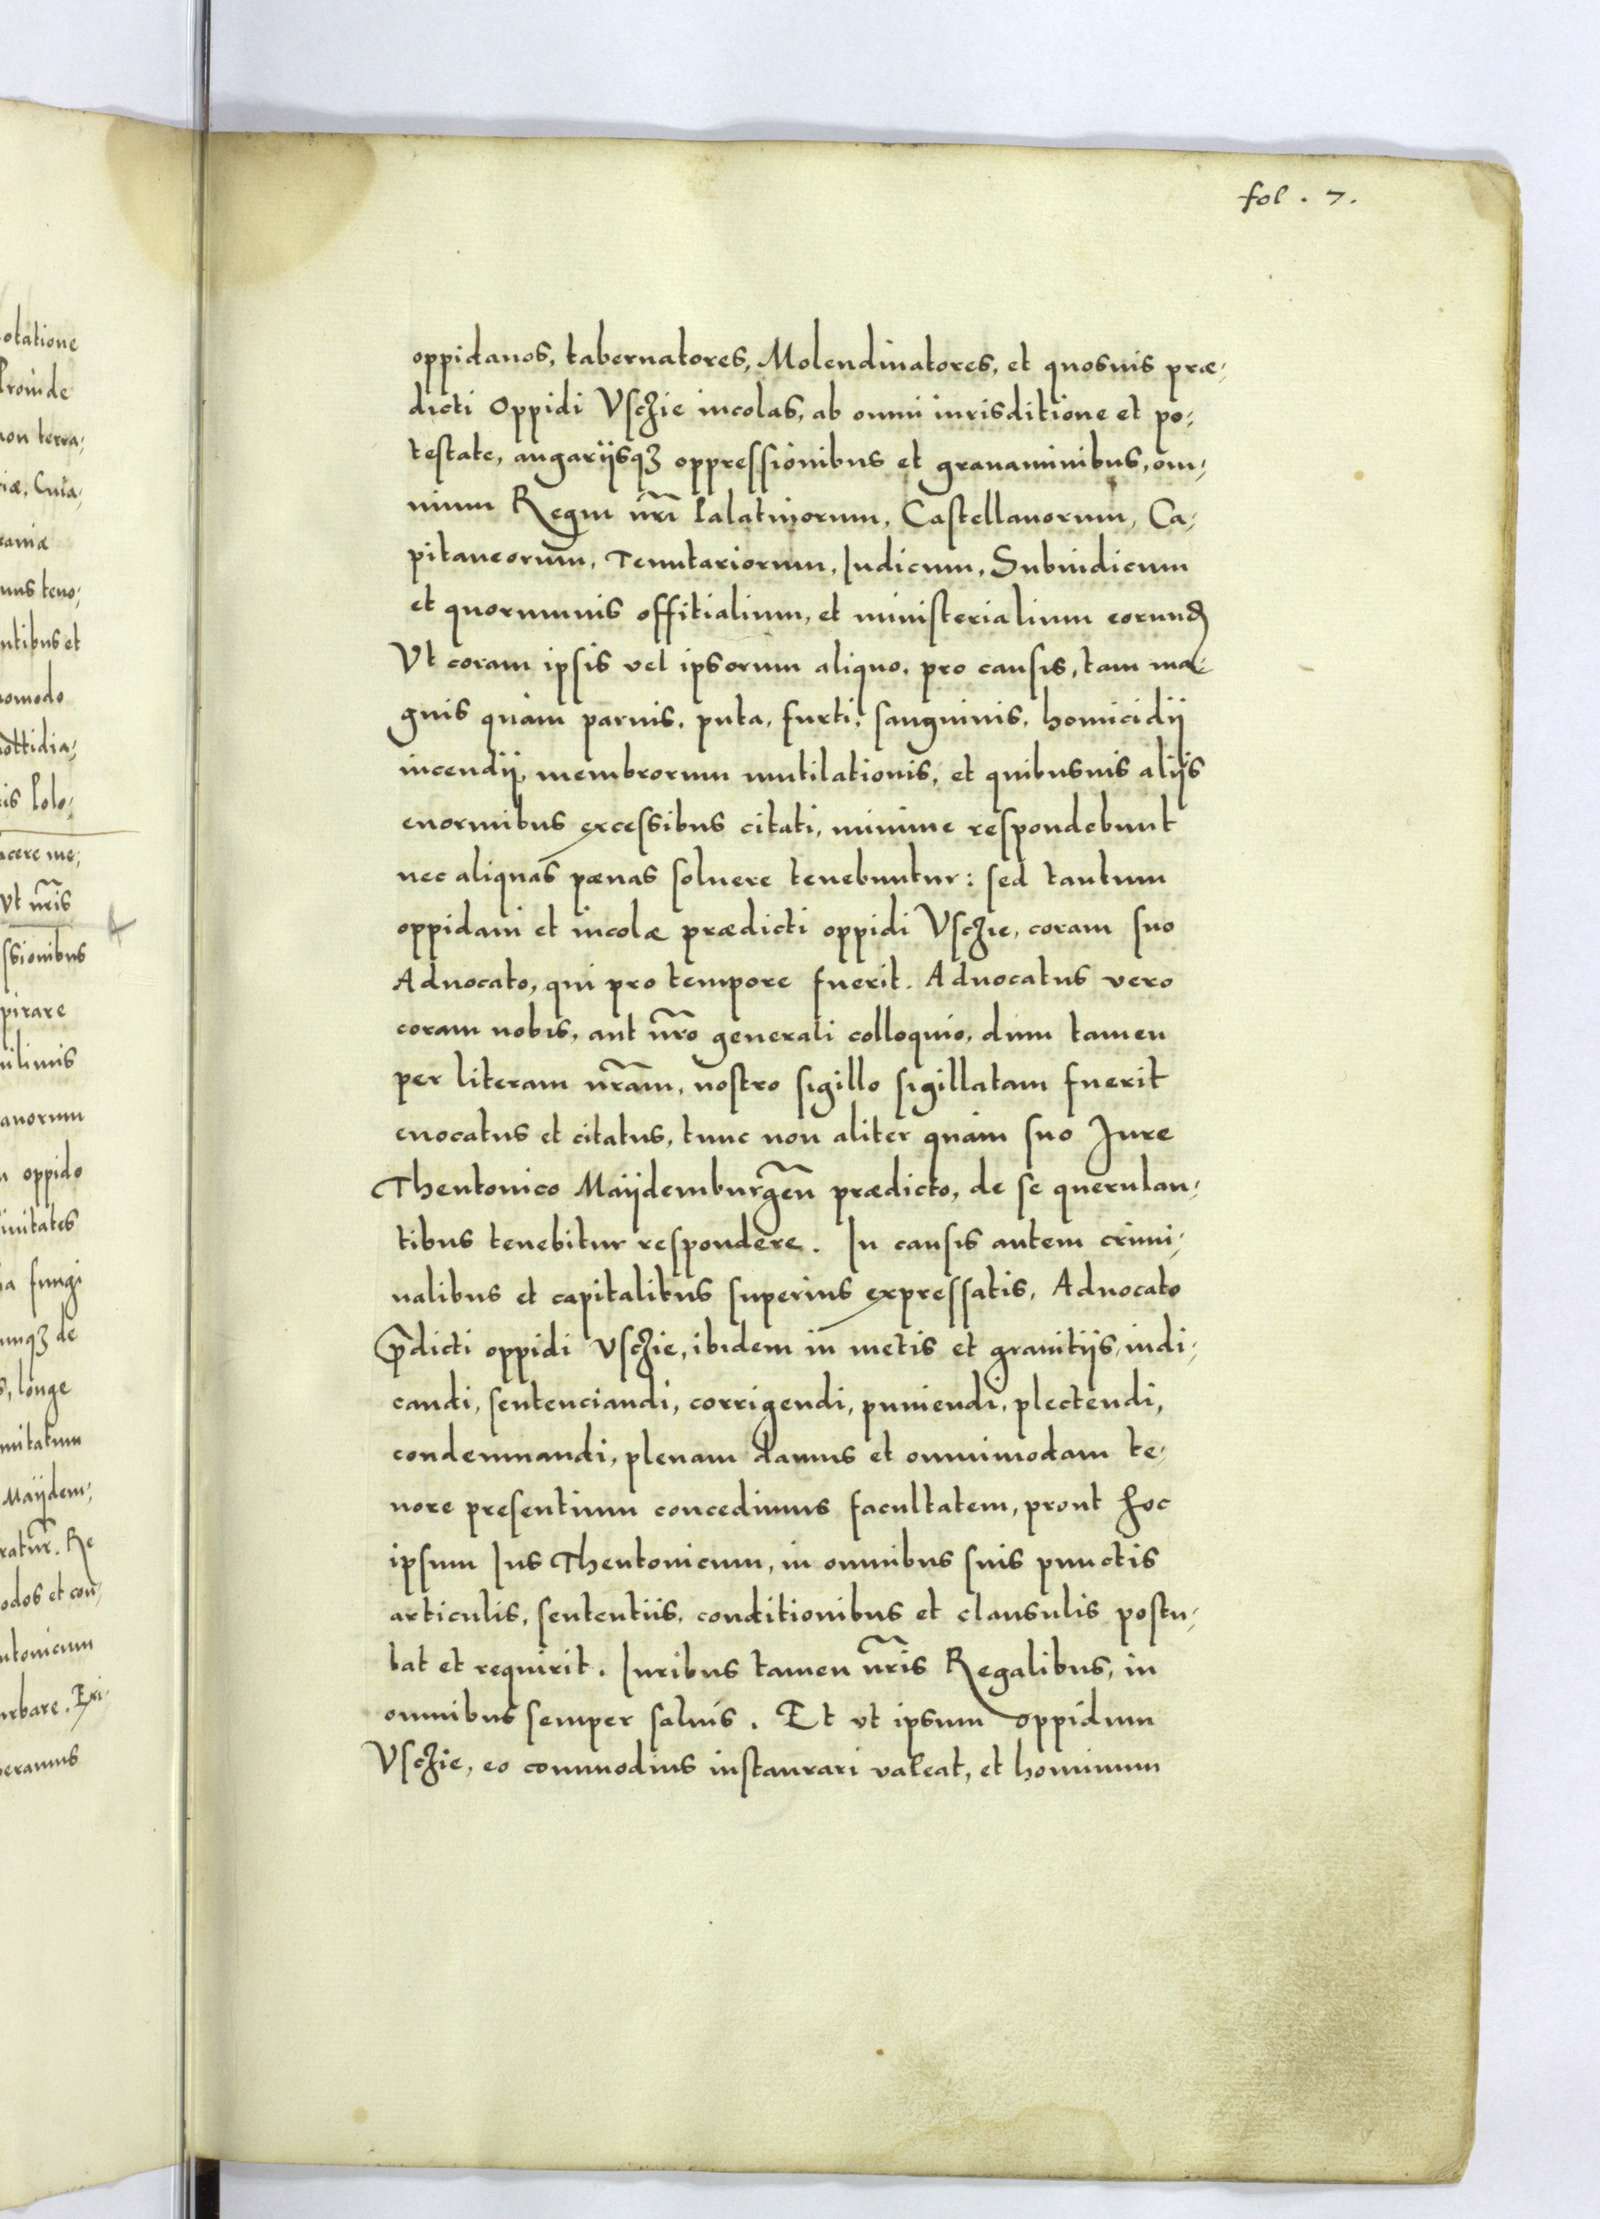 fol. 7.
oppidanos, tabernatores, Molendinatores, et quosuis præ-
dicti Oppidi Vschie incolas, ab omni iurisditione et po-
testate, angariisqȝ oppressionibus et grauaminibus, om-
nium Regni nr̃i Palatinorum, Castellanorum, Ca-
pitaneorum, Tenutariorum, Iudicum, Subiudicum
et quorumuis offitialium, et ministerialium eorund̃
Vt coram ipsis vel ipsorum aliquo, pro causis, tam ma-
gnis quàm paruis, puta, furti, sanguinis, homicidij
incendij, membrorum mutilationis, et quibusuis alijs
enormibus excessibus citati, minime respondebunt
nec aliquas pœnas soluere tenebuntur: sed tantum
oppidani et incolæ prædicti oppidi Vschie, coram suo
Aduocato, qui pro tempore fuerit. Aduocatus vero
coram nobis, aut nr̃o generali colloquio, dum tamen
per literam nr̃am, nostro sigillo sigillatam fuerit
euocatus et citatus, tunc non aliter quàm suo Jure
Theutonico Maÿdemburgeñ prædicto, de se querulan-
tibus tenebitur respondere. In causis autem crimi-
nalibus et capitalibus superius expressatis, Aduocato
p̃dicti oppidi Vschie, ibidem in metis et granitijs, iudi-
candi, sentenciandi, corrigendi, puniendi, plectendi,
condemnandi, plenam damus et omnimodam te-
nore presentium concedimus facultatem, prout hoc
ipsum Ius Theutonicum, in omnibus suis punctis
articulis, sententiis, conditionibus et clausulis postu-
lat et requirit. Iuribus tamen nr̃is Regalibus, in
omnibus semper saluis. Et vt ipsum oppidum
Vschie, eo commodius instaurari valeat, et hominum